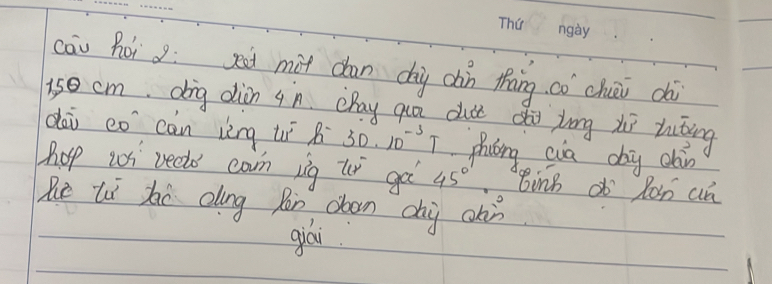 Thứ ngày . .
câu hỏi 2: xét một đoạn dây dẫn thẳng có chiều dài
1,50 cm. dòng điện 4 A chạy qua được đặt trong từ trường
đều có cảm ứng từ là 30.10⁻³ T. phương của dây dẫn
hợp với vectơ cảm ứng từ góc 45°. tính độ lớn của
lực từ tác dụng lên đoạn dây dẫn.
giải.